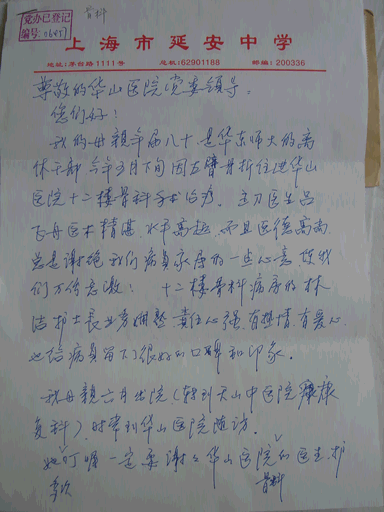 党办已登记
编号:
骨科
上海市延安中学
地址:茅台路1111号 总机:62901188 邮编:200336
尊敬的华山医院党委领导:
您们好!
我的母亲年届八十,是华东师大的离
休干部,今年五月下旬因左臂骨折住进华山
医院十二楼骨科手术治疗。主刀医生吕
飞舟医术精湛,水平高超,而且医德高尚,
总是谢绝我们病员家属的一点心意,使我
们万分感激!十二楼骨科病房的林
洁护士长业务娴熟,责任心强,有热情,有爱心,
也给病员留下了很好的口碑和印象。
我母亲六月出院(转到天山中医院康
复科),时常到华山医院随访。
她叮嘱一定要谢谢华山医院的医生、护
多次 骨科